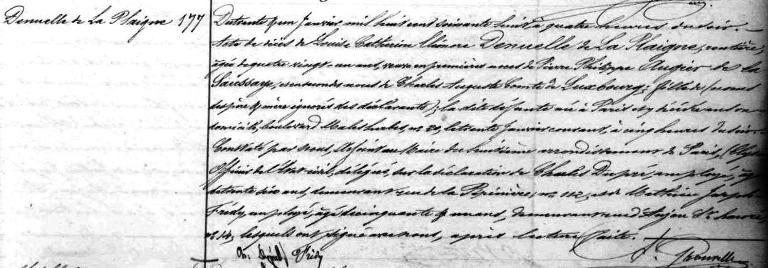 Denuelle de La Plaigne 177
Du trente & un Janvier mil huit cent soixante huit, à quatre heures du soir.
Acte de décès de Louise Catherine Eléonore Denuelle de La Plaigne, rentière,
âgée de quatre vingt un ans, veuve en premières noces de Pierre Philippe Augier de la
Saussaye, en secondes noces de Charles Auguste Comte de Luxbourg; fille de (noms
des père & mère ignorés des déclarants); la dite défunte née à Paris et y décédée en son
domicile, boulevard Malesherbes, no le trente Janvier courant, à cinq heures du soir.
Constaté par nous, Adjoint au Maire du huitième arrondissement de Paris,
Officier de l'état civil, délégué, sur la déclaration de Charles Dupré, employé, âgé
de trente six ans, demeurant rue de la Pépinière, no 112, et de Mathieu Joseph
Frédy, employé, âgé de cinquante & un ans, demeurant rue d'Anjou St honoré,
no lesquels ont signé avec nous, après lecture faite.
Ch. Dupré Frédy